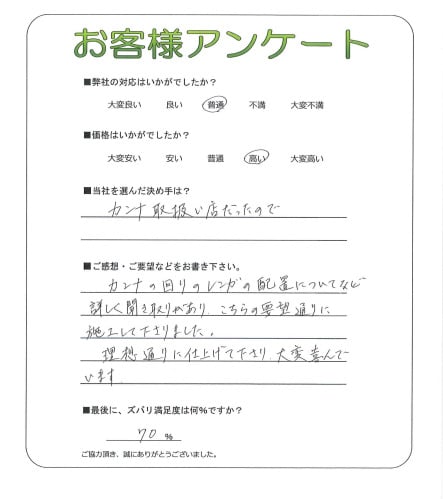 お客様アンケート
■弊社の対応はいかがでしたか?
大変良い 良い 普通 不満 大変不満
■価格はいかがでしたか?
大変安い 安い 普通 高い 大変高い
■当社を選んだ決め手は?
カンナ取扱い店だったので
■ご感想・ご要望などをお書き下さい。
カンナの回りのレンガの配置についてなど
詳しく聞き取りがあり、こちらの要望通りに
施工して下りました。
理想通りに仕上げて下さり、大変喜んで
います
■最後に、ズバリ満足度は何%ですか?
70 %
ご協力頂き、誠にありがとうございました。